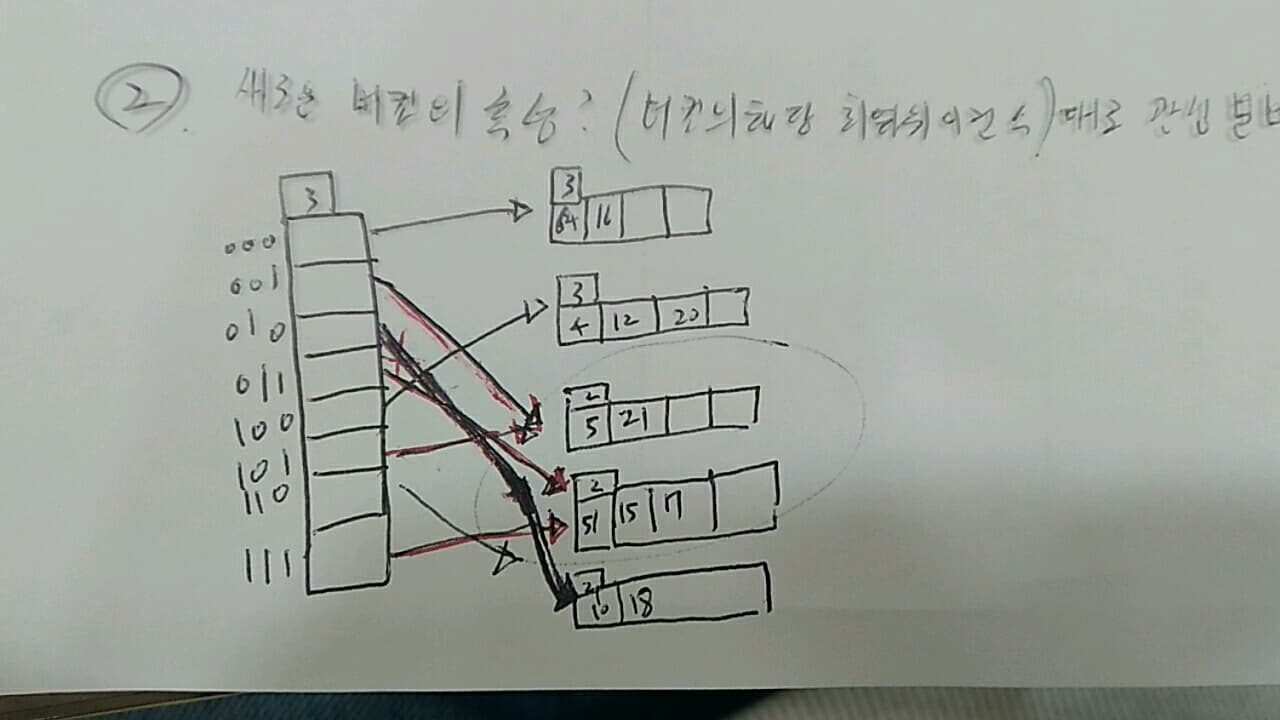 ②. 새로운 버킷의 속성? (버킷의 해당
3
000
001
010
011
100
101
110
111
3
64 16
3
4 12 20
2
5 21
2
51 15 17
2
10 18